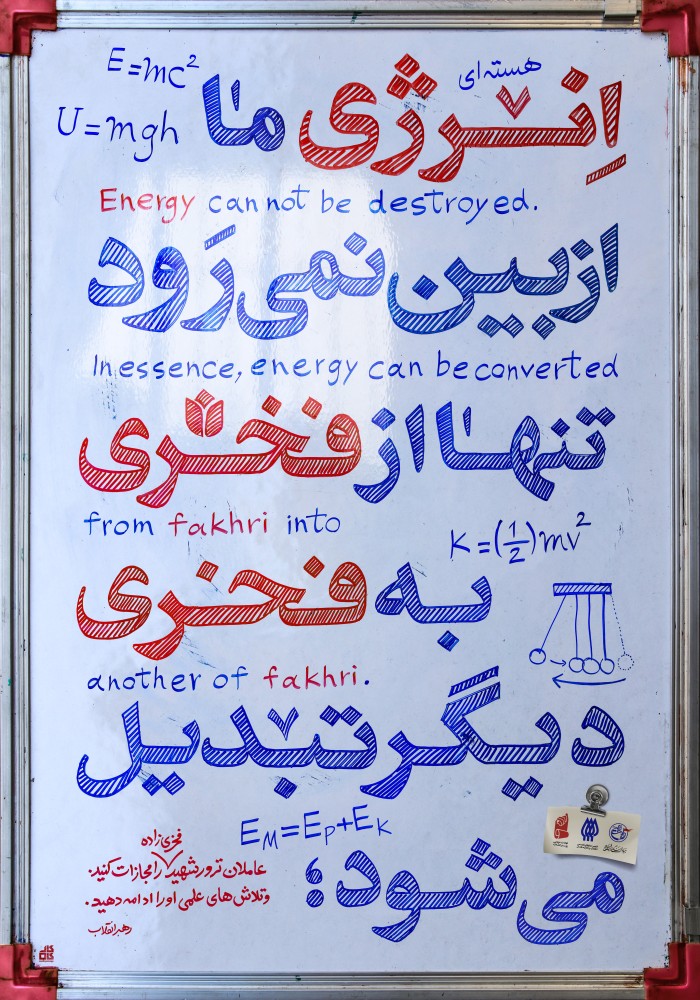 E=mc²
هسته‌ای
U=mgh
اِنـرژی ما
Energy cannot be destroyed.
از بین نمی‌رَود
In essence, energy can be converted
تنها از فخری
from fakhri into
K=(1/2)mv²
به فخری
another of fakhri.
دیگر تبدیل
E_M=E_P+E_K
می‌شود؛
فخری‌زاده
عاملان ترور شهید را مجازات کنید.
و تلاش‌های علمی او را ادامه دهید.
رهبر انقلاب